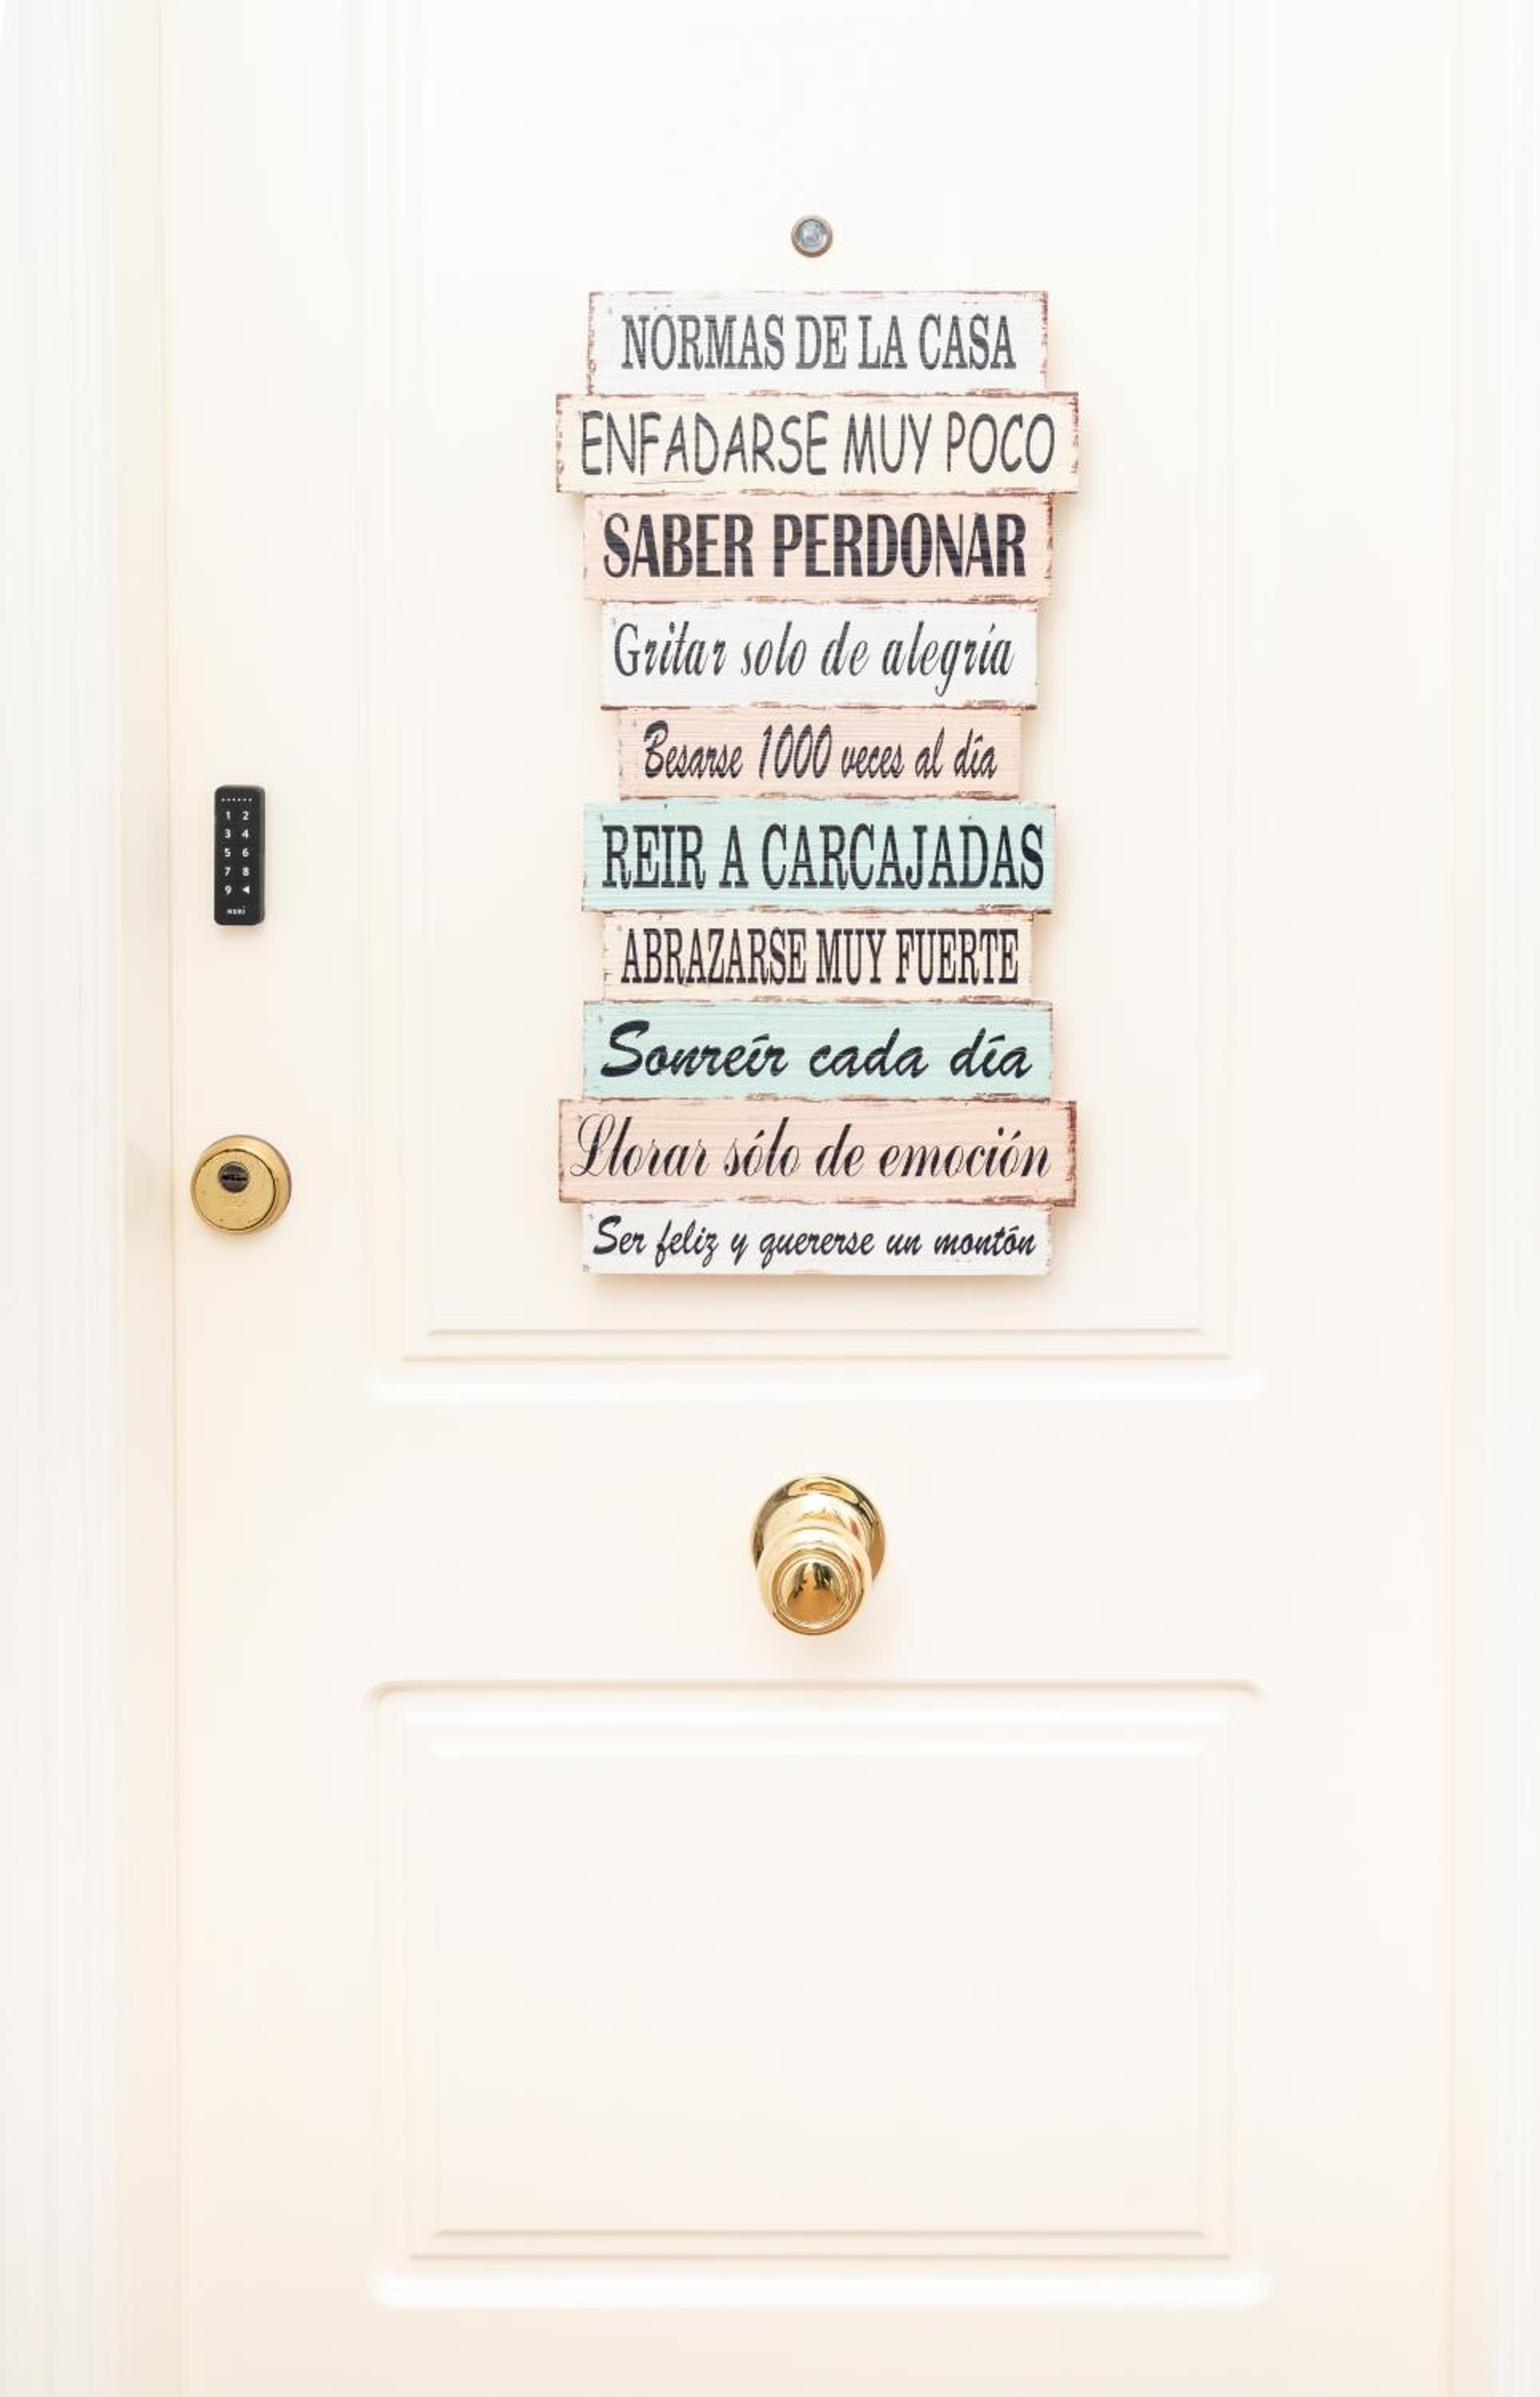 NORMAS DE LA CASA
ENFADARSE MUY POCO
SABER PERDONAR
Gritar solo de alegría
Besarse 1000 veces al día
REIR A CARCAJADAS
ABRAZARSE MUY FUERTE
Sonreír cada día
Llorar sólo de emoción
Ser feliz y quererse un montón
1 2
3 4
5 6
7 8
9 ◀
NUKI